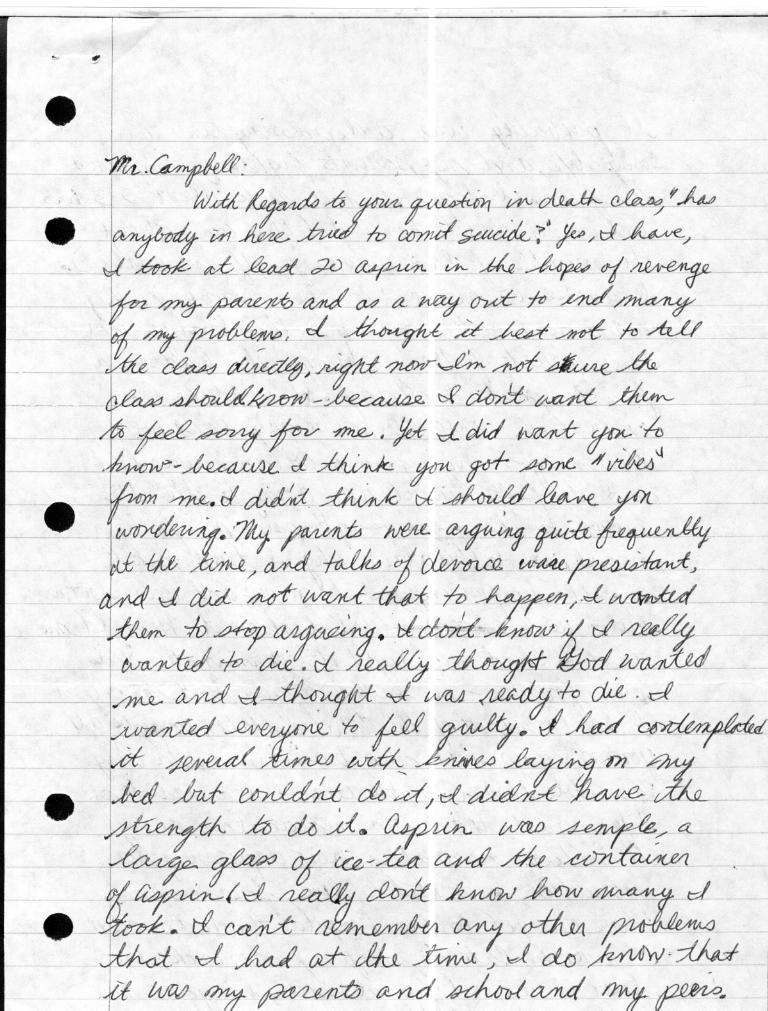 Mr. Campbell:
With Regards to your question in death class, "has
anybody in here tried to comit suicide?" Yes, I have,
I took at least 20 asprin in the hopes of revenge
for my parents and as a way out to end many
of my problems. I thought it best not to tell
the class directly, right now I'm not sure the
class should know - because I don't want them
to feel sorry for me. Yet I did want you to
know - because I think you got some "vibes"
from me. I didn't think I should leave you
wondering. My parents were arguing quite frequently
at the time, and talks of devorce were presistant,
and I did not want that to happen, I wanted
them to stop argueing. I don't know if I really
wanted to die. I really thought God wanted
me and I thought I was ready to die. I
wanted everyone to feel guilty. I had contemplated
it several times with knives laying on my
bed but couldn't do it, I didn't have the
strength to do it. Asprin was semple, a
large glass of ice-tea and the container
of asprin! I really don't know how many I
took. I can't remember any other problems
that I had at the time, I do know that
it was my parents and school and my peers.